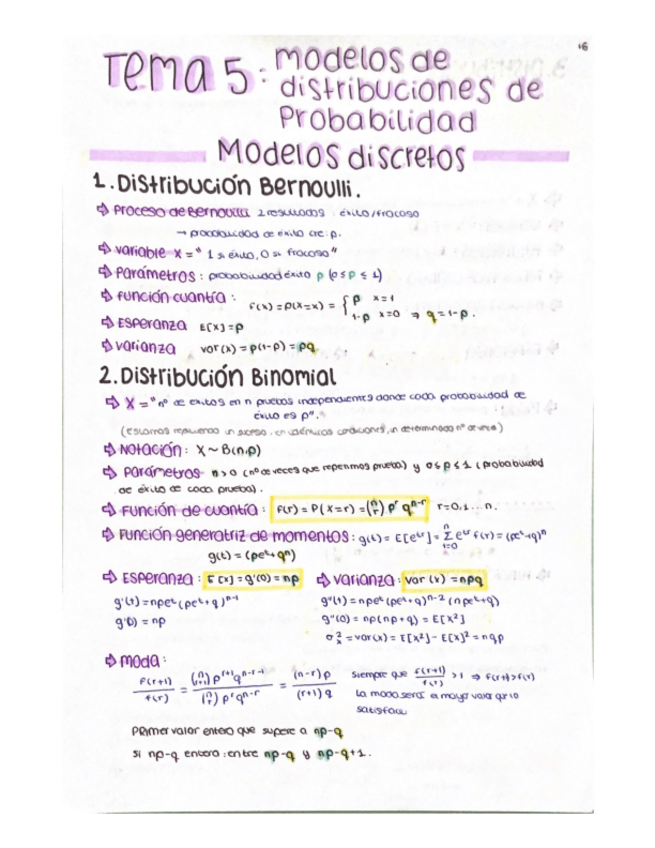 16
Tema 5: modelos de
distribuciones de
Probabilidad
Modelos discretos
1. Distribución Bernoulli.
⇨ Proceso de Bernoulli 2 resultados : éxito/fracaso
→ probabilidad de éxito cte: p.
⇨ variable X = " 1 si éxito, 0 si fracaso"
⇨ Parámetros : probabilidad éxito p (0 ≤ p ≤ 1)
⇨ Función cuantía : f(x) = P(X=x) = { p x=1
1-p x=0 ⇒ q = 1-p.
⇨ Esperanza E[X] = p
⇨ varianza var(x) = p(1-p) = pq
2. Distribución Binomial
⇨ X = "nº de éxitos en n pruebas independientes donde cada probabilidad de
éxito es p".
(estamos repitiendo un suceso, en idénticas condiciones, un determinado nº de veces)
⇨ Notación : X ~ B(n,p)
⇨ Parámetros n > 0 (nº de veces que repetimos prueba) y 0 ≤ p ≤ 1 (probabilidad
de éxito de cada prueba).
⇨ Función de cuantía : f(r) = P(X=r) = (n r) p^r q^n-r r=0,1...n.
⇨ Función generatriz de momentos : g(t) = E[e^tr] = Σ^n_i=0 e^tr f(r) = (pe^t+q)^n
g(t) = (pe^t+q^n)
⇨ Esperanza : E[X] = g'(0) = np ⇨ varianza : var(x) = npq
g'(t) = npe^t (pe^t+q)^n-1 g''(t) = npe^t (pe^t+q)^n-2 (npe^t+q)
g'(0) = np g''(0) = np(np+q) = E[X²]
σ²_x = var(x) = E[X²] - E[X]² = nqp
⇨ moda :
f(r+1)/f(r) = (n r+1) p^r+1 q^n-r-1 / (n r) p^r q^n-r = (n-r)p / (r+1)q siempre que f(r+1)/f(r) > 1 ⇒ f(r+1) > f(r)
La moda será el mayor valor que lo
satisface
Primer valor entero que supere a np-q
Si np-q entero : entre np-q y np-q+1.